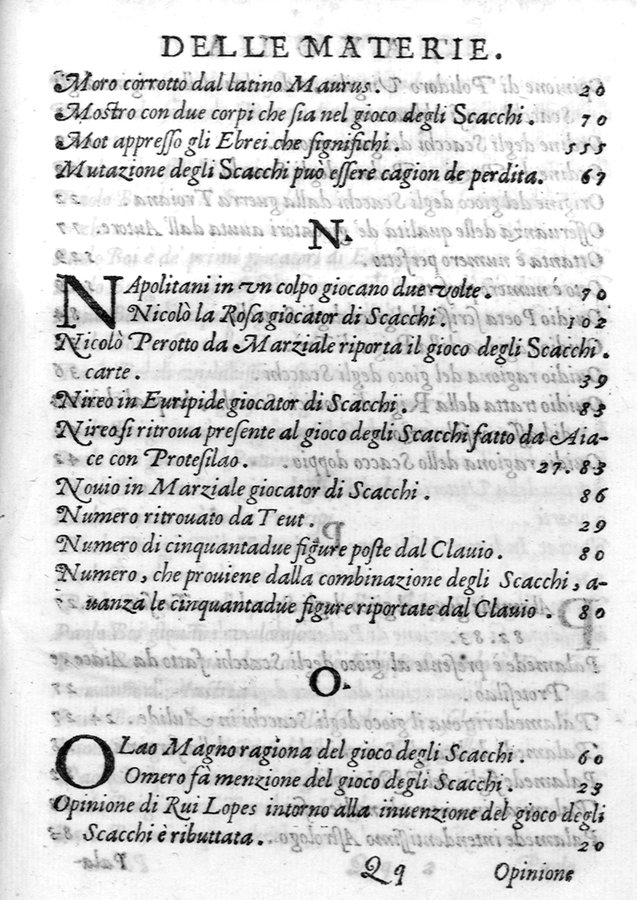 DELLE MATERIE.
Moro corrotto dal latino Maurus. 20
Mostro con due corpi che ſia nel gioco degli Scacchi. 70
Mot appreſſo gli Ebrei che ſignifichi. 555
Mutazione degli Scacchi può eſſere cagion de perdita. 67
N.
NApolitani in vn colpo giocano due volte. 70
Nicolò la Roſa giocator di Scacchi. 102
Nicolò Perotto da Marziale riporta il gioco degli Scacchi.
carte. 39
Nireo in Euripide giocator di Scacchi. 83
Nireo ſi ritroua preſente al gioco degli Scacchi fatto da Aia-
ce con Proteſilao. 27. 83
Nouio in Marziale giocator di Scacchi. 86
Numero ritrouato da Teut. 29
Numero di cinquantadue figure poſte dal Clauio. 80
Numero, che prouiene dalla combinazione degli Scacchi, a-
uanza le cinquantadue figure riportate dal Clauio. 80
O.
OLao Magno ragiona del gioco degli Scacchi. 60
Omero fà menzione del gioco degli Scacchi. 23
Opinione di Rui Lopes intorno alla inuenzione del gioco degli
Scacchi è ributtata. 20
Qq 2 Opinione